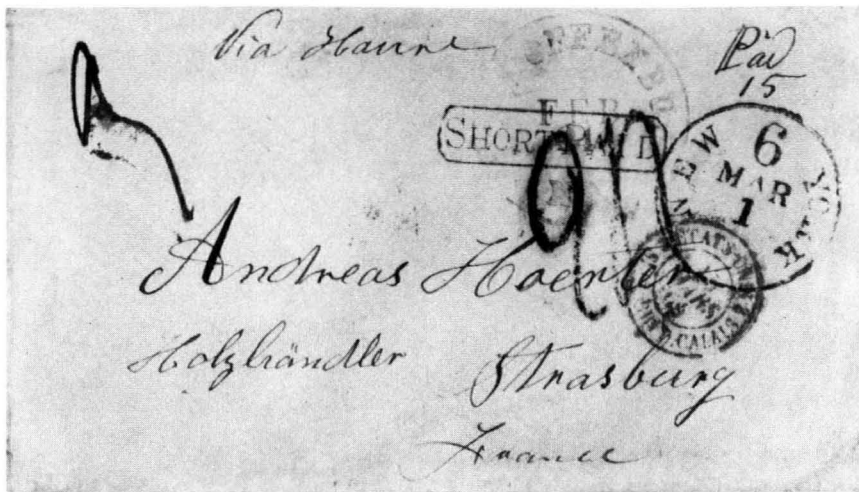 Via Havre
Paid
15
FEB
SHORT PAID
NEW YORK
6
MAR
1
Andreas Hoerter
Holzhändler
Strasburg
France